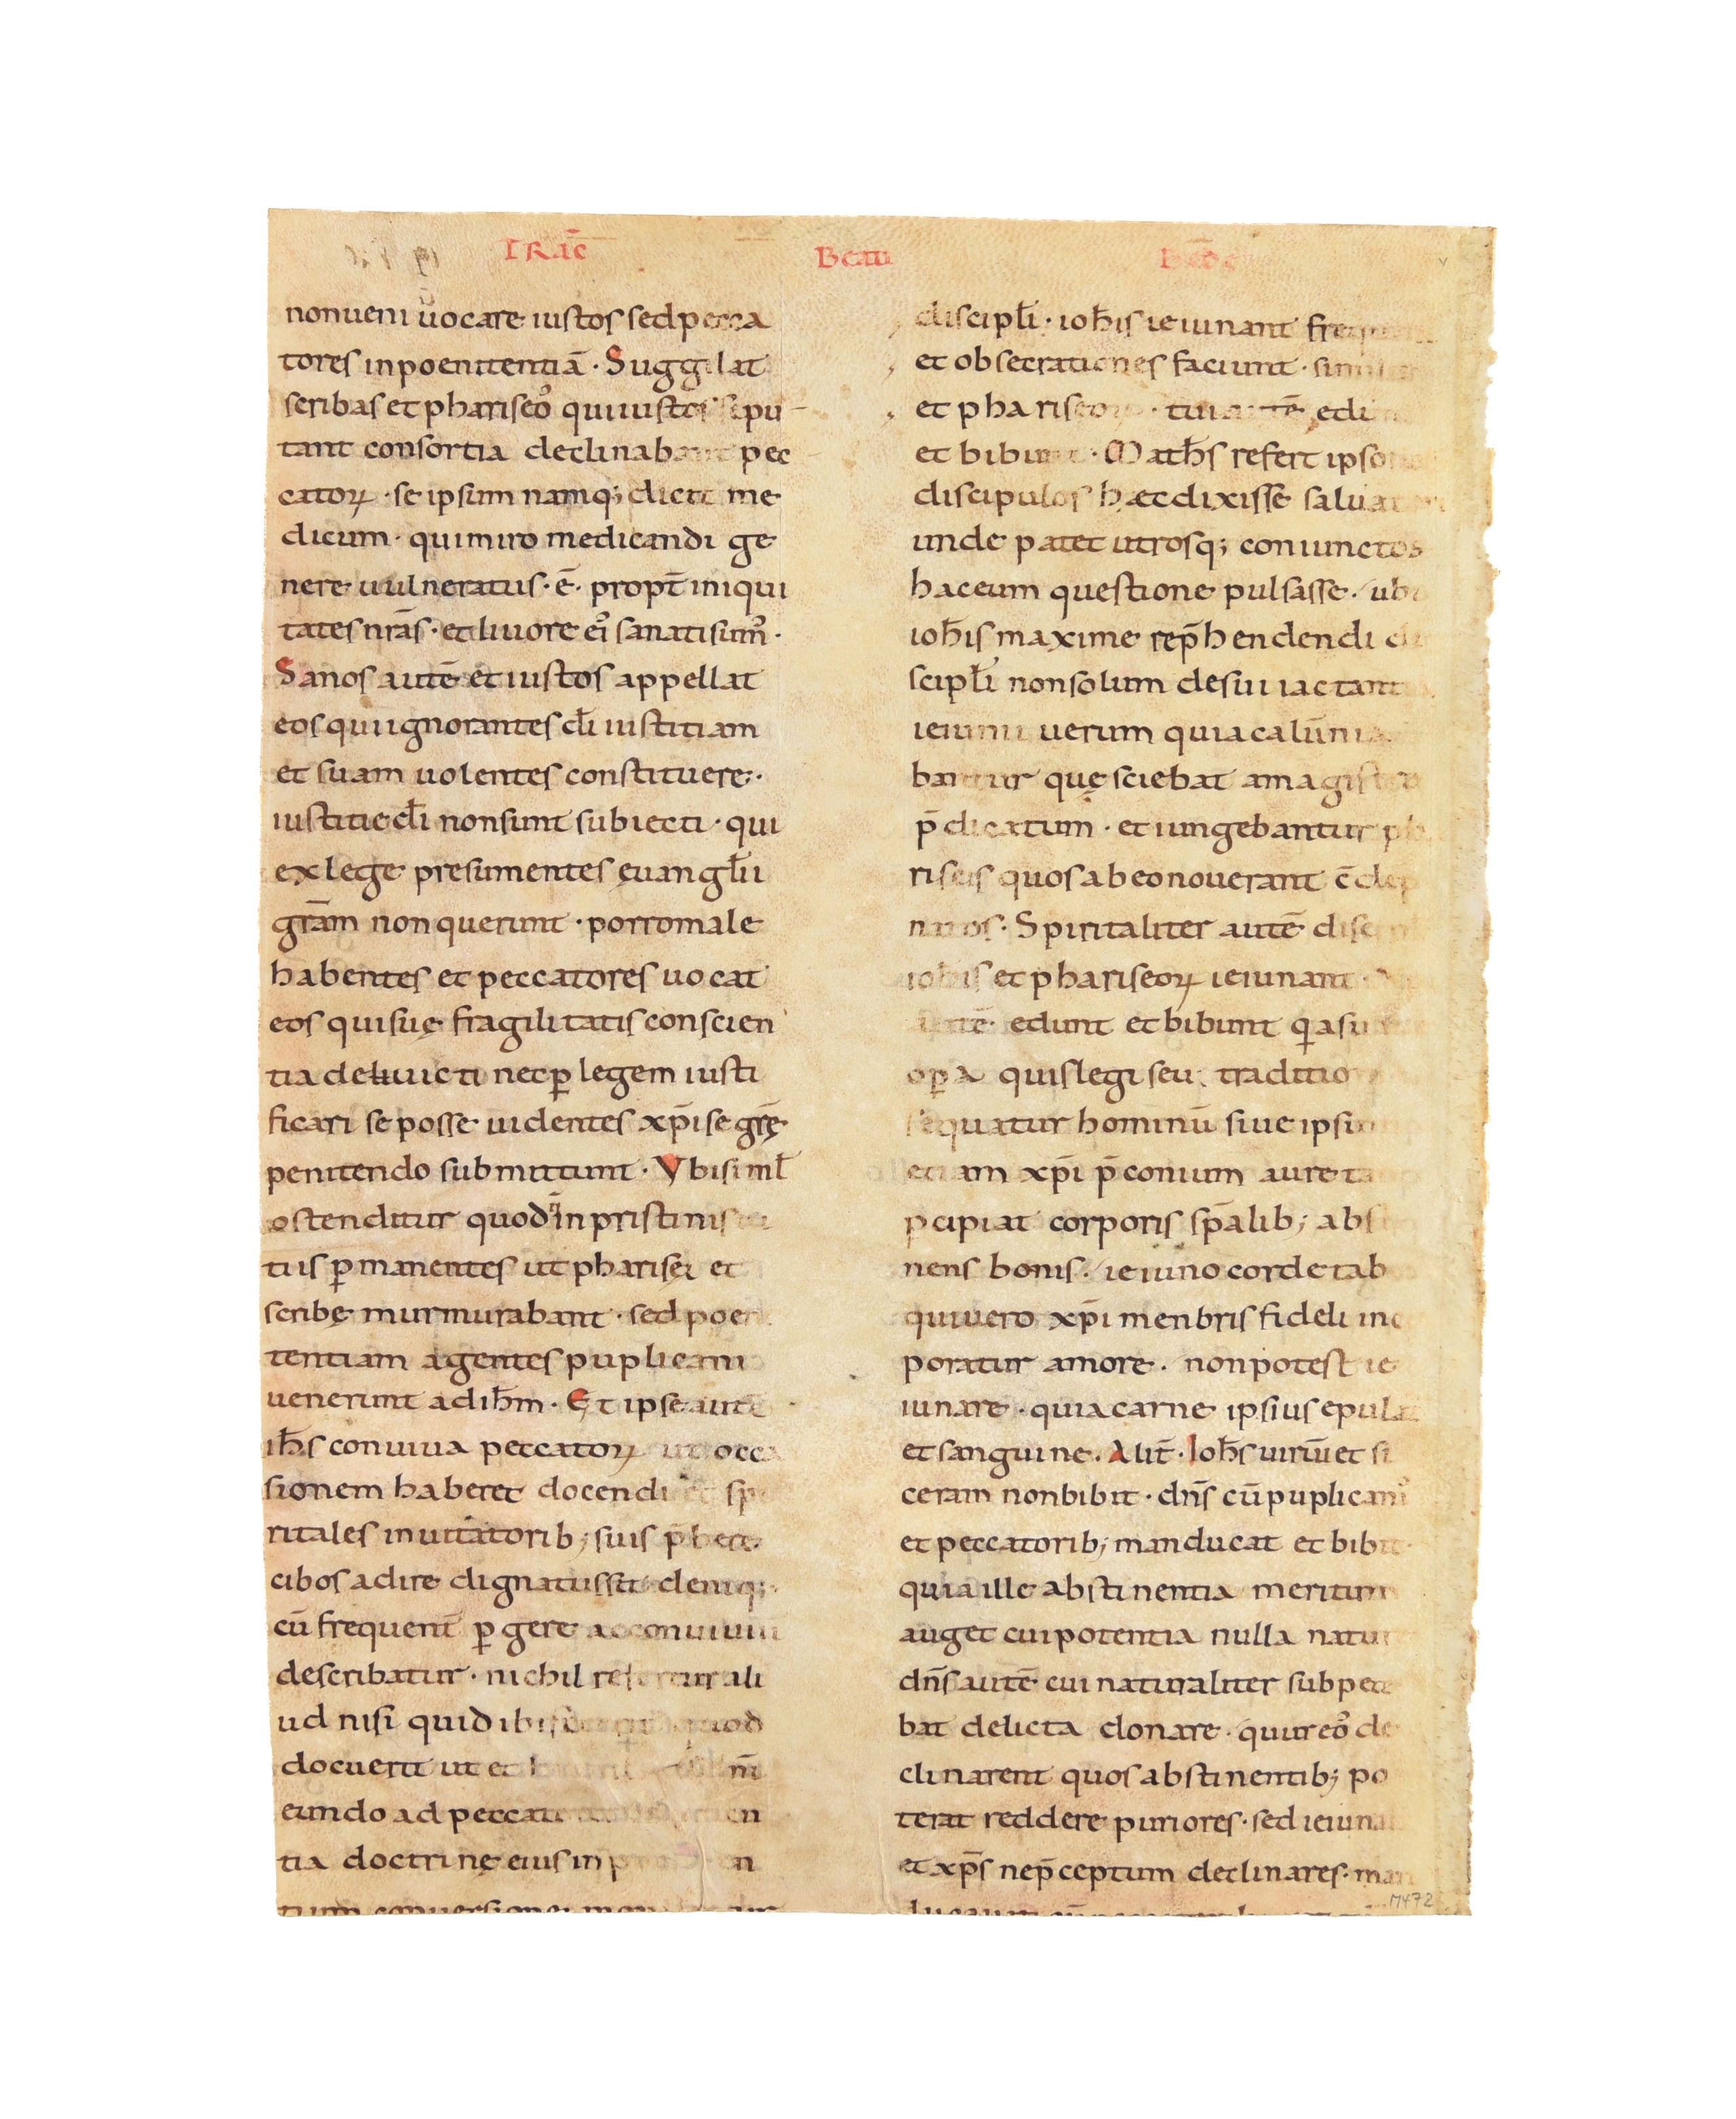 TRAC̄ Beati Bede
non ueni uocare iustos sed pecca
tores inpoenitentiā · Suggilat
scribas et phariseoꝰ qui iustos se pu
tant consortia declinabant pec
catoꝝ · se ipsum namq; dicit me
dicum · qui miro medicandi ge
nere uulneratus · ē · propt̄ iniqui
tates nr̄as · et liuore eiꝰ sanati sumꝰ ·
Sanos autē et iustos appellat
eos qui ignorantes dı̄ iustitiam
et suam uolentes constituere ·
iustitie dı̄ non sunt subiecti · qui
ex lege presumentes euanglii
grām non querunt · porro male
habentes et peccatores uocat
eos qui suę fragilitatis conscien
tia deuicti nec ꝑ legem iusti
ficari se posse uidentes xp̄i se grę̄
penitendo submittunt · Vbi siml̄
ostenditur quod in pristinis
tiis ꝑmanentes ut pharisęi et
scribę murmurabant · sed poe
tentiam agentes puplicani
uenerunt ad ih̄m · Et ipse autē
ih̄s conuiua peccatoꝝ ut occa
sionem haberet docendi et sp
ritales inuitatorib; suis p̄beret
cibos adire dignatus sit deniq; ·
cū frequent̄ ꝑgere ac conuiuiu
describatur · nichil refertur ali
ud nisi quid ibi quod
docuerit ut et
eundo ad peccat
tia doctrinę eius in
tium conuersione
discipl̄i · ioh̄is ieiunant
et obsecrationes faciunt ·
et phariseoꝝ · tui autē
et bibunt · Math̄s refert
discipulos hæc dixisse
unde patet utrosq; coniunctos
hac eum questione pulsasse · ubi
ioh̄is maxime rep̄hendendi di
scipl̄i non solum de sui iactant
ieiunii uerum quia calūnia
bantur quę sciebat a magistro
p̄dicatum · et iungebantur pha
riseis quos ab eo nouerant ē
natos · Spiritaliter autē
ioh̄is et phariseoꝝ ieiunant ·
autē edunt et bibunt
oꝑa quis legi seu traditio
sequatur hominū siue
etiam xp̄i p̄conium aure
pcipiat corporis sp̄alib;
nens bonis · ieiuno corde tab
qui uero xp̄i menbris fideli inc
poratur amore · non potest ie
iunare · quia carne ipsius epulat
et sanguine · Alit̄ · Ioh̄s uinū et si
ceram non bibit · dn̄s cū puplicanꝰ
et peccatorib; manducat et bibit ·
quia ille abstinentia meritum
auget cui potentia nulla natu
dn̄s autē cui naturaliter subpete
bat delicta donare · qur eoꝰ de
clinarent quos abstinentib; po
terat reddere puriores · sed ieiunat
et xp̄s ne p̄ceptum declinares · man
M472